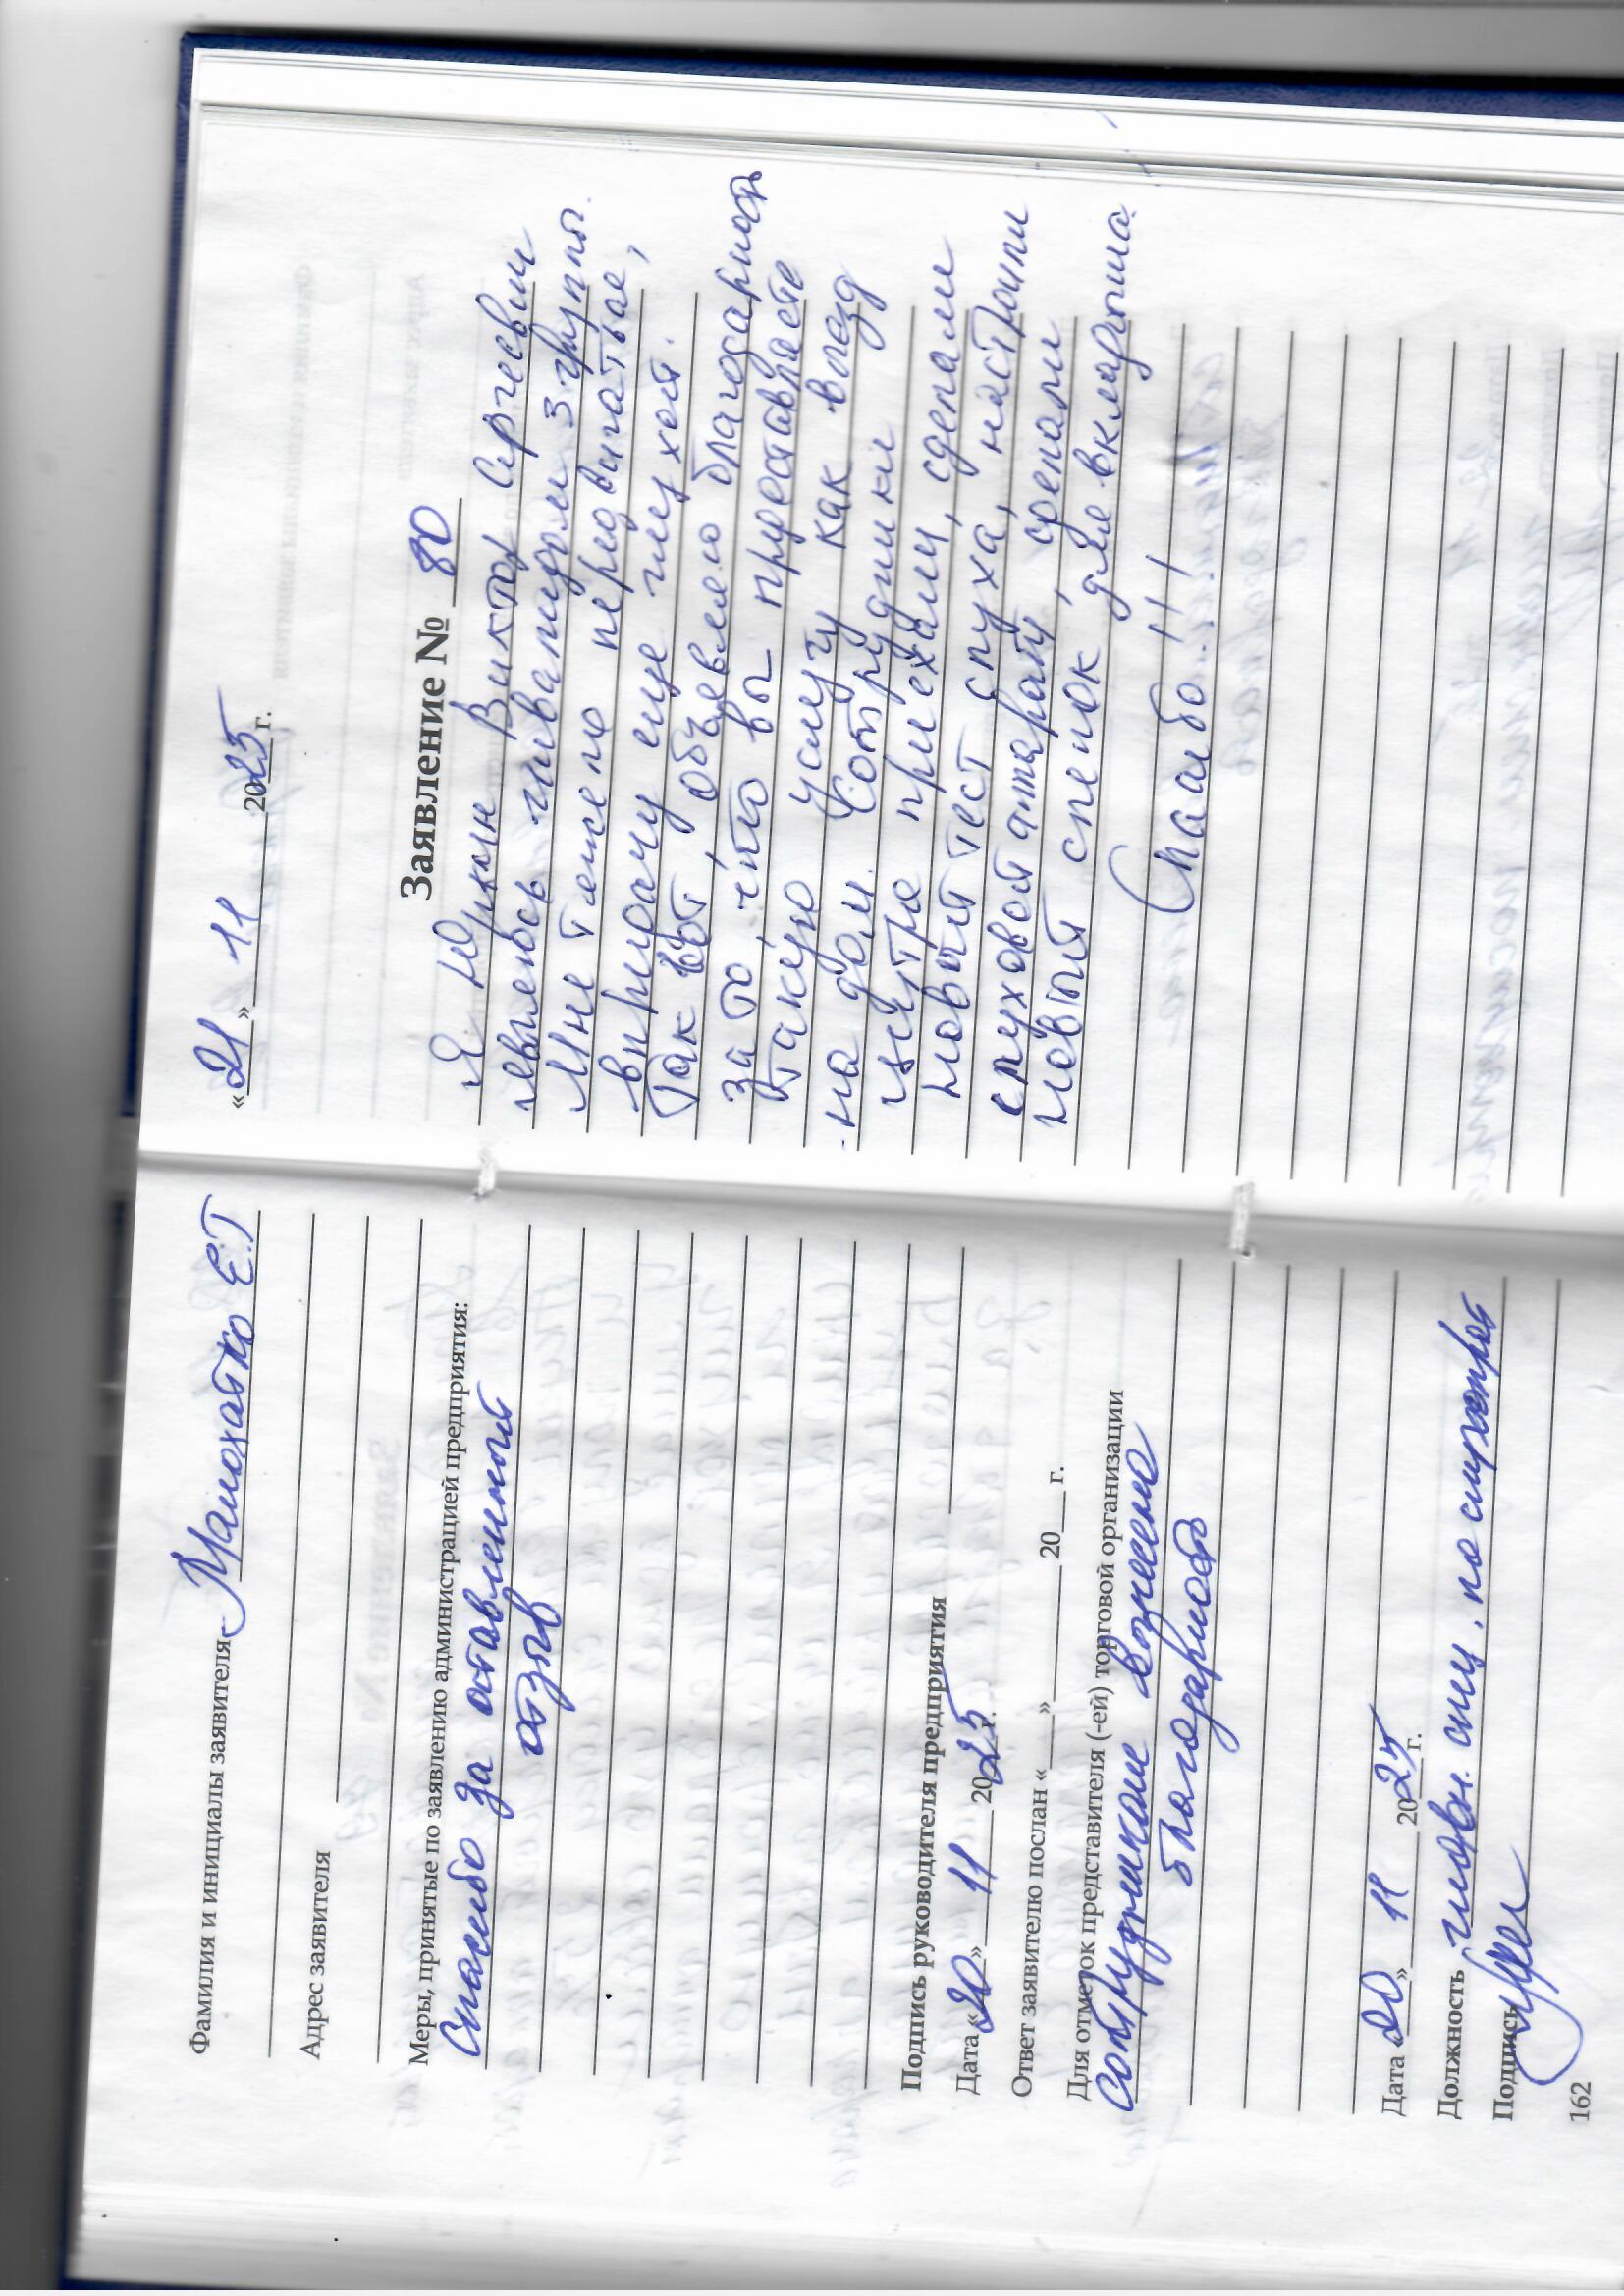 Фамилия и инициалы заявителя Манохатко Е.Т
Адрес заявителя
Меры, принятые по заявлению администрацией предприятия:
Спасибо за оставленный
отзыв
Подпись руководителя предприятия
Дата «20» 11 2025 г.
Ответ заявителю послан «___» ______ 20__ г.
Для отметок представителя (-ей) торговой организации
сотрудникам вознесена
благодарность
Дата «20» 11 2025 г.
Должность главн. спец. по слухопрот
Подпись
162
«21» 11 2025 г.
Заявление № 80
Я Юркин Виктор Сергеевич
являюсь инвалидом 3 группы.
Мне тяжело передвигатьae,
впридачу еще глухой.
Так вот, объевляю благодарность
за то, что вы предоставляете
такую услугу как выезд
на дом. Сотрудники
центра приехали, сделали
новый тест слуха, настроили
слуховой аппарат, сделали
новый слепок для вкладыша.
Спасибо!!!